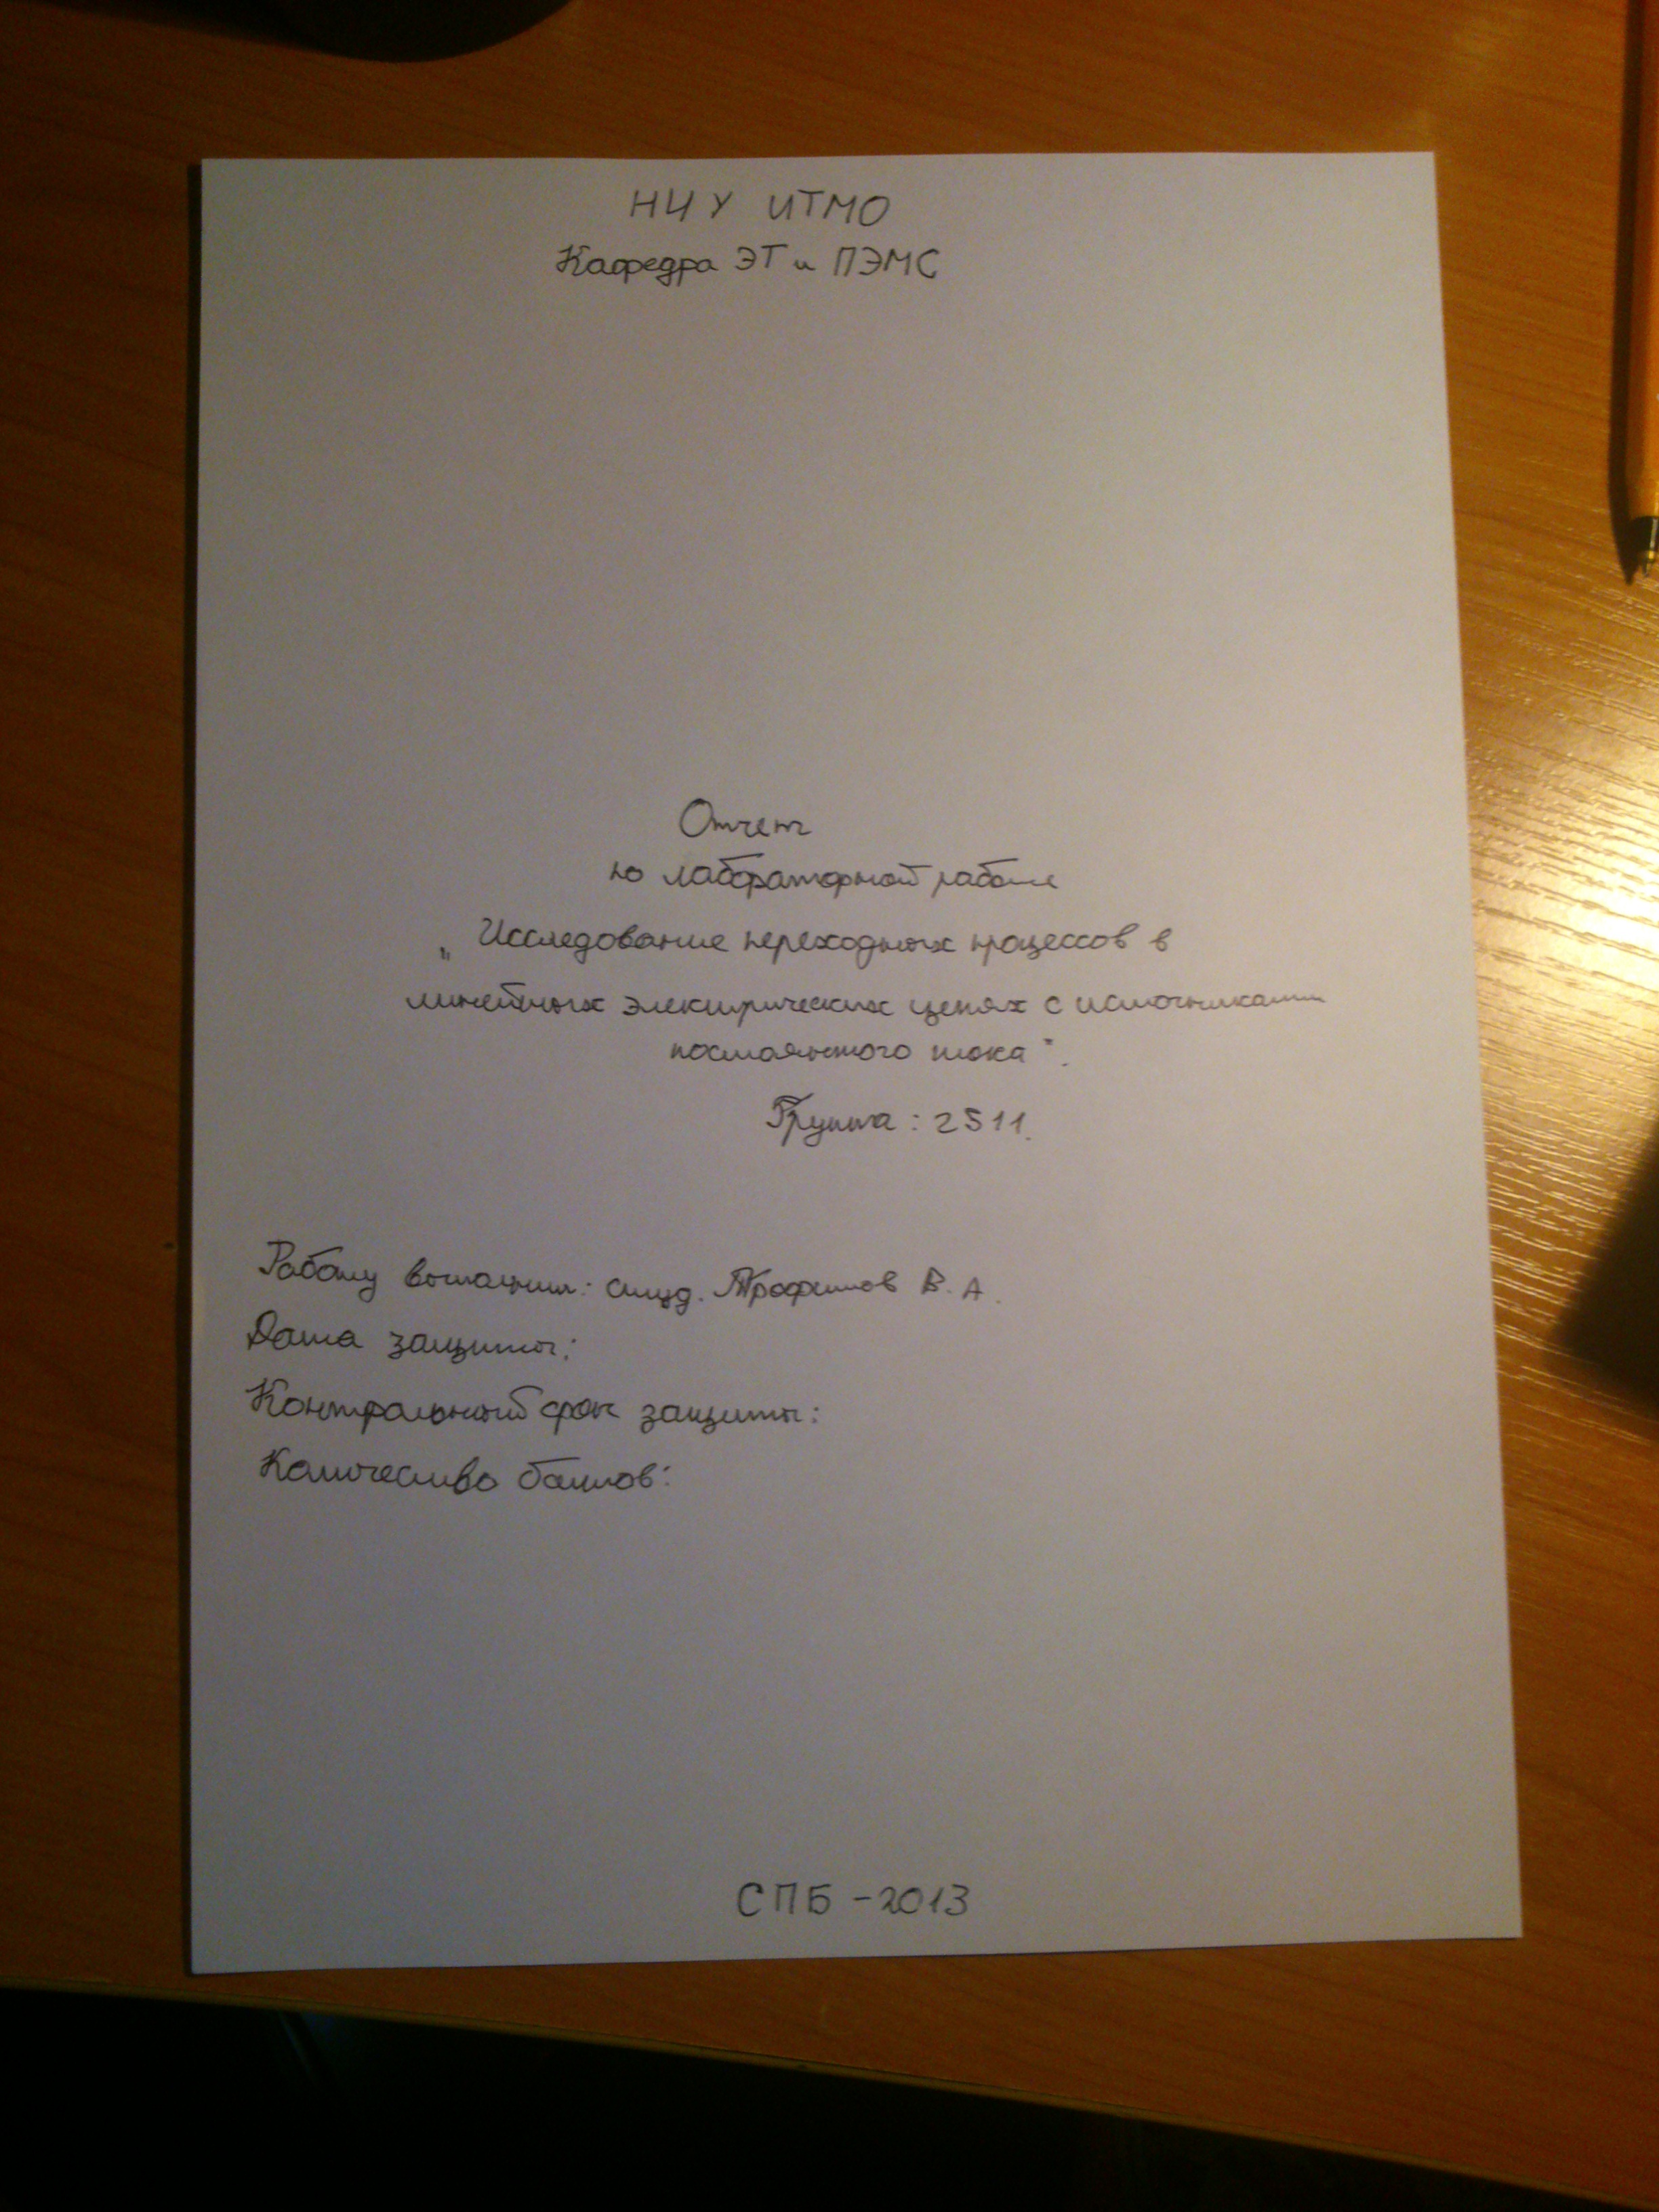 НИУ ИТМО
Кафедра ЭТ и ПЭМС
Отчет
по лабораторной работе
„Исследование переходных процессов в
линейных электрических цепях с источниками
постоянного тока".
Группа: 2511.
Работу выполнил: студ. Трофимов В. А.
Дата защиты:
Контрольный срок защиты:
Количество баллов:
СПБ - 2013